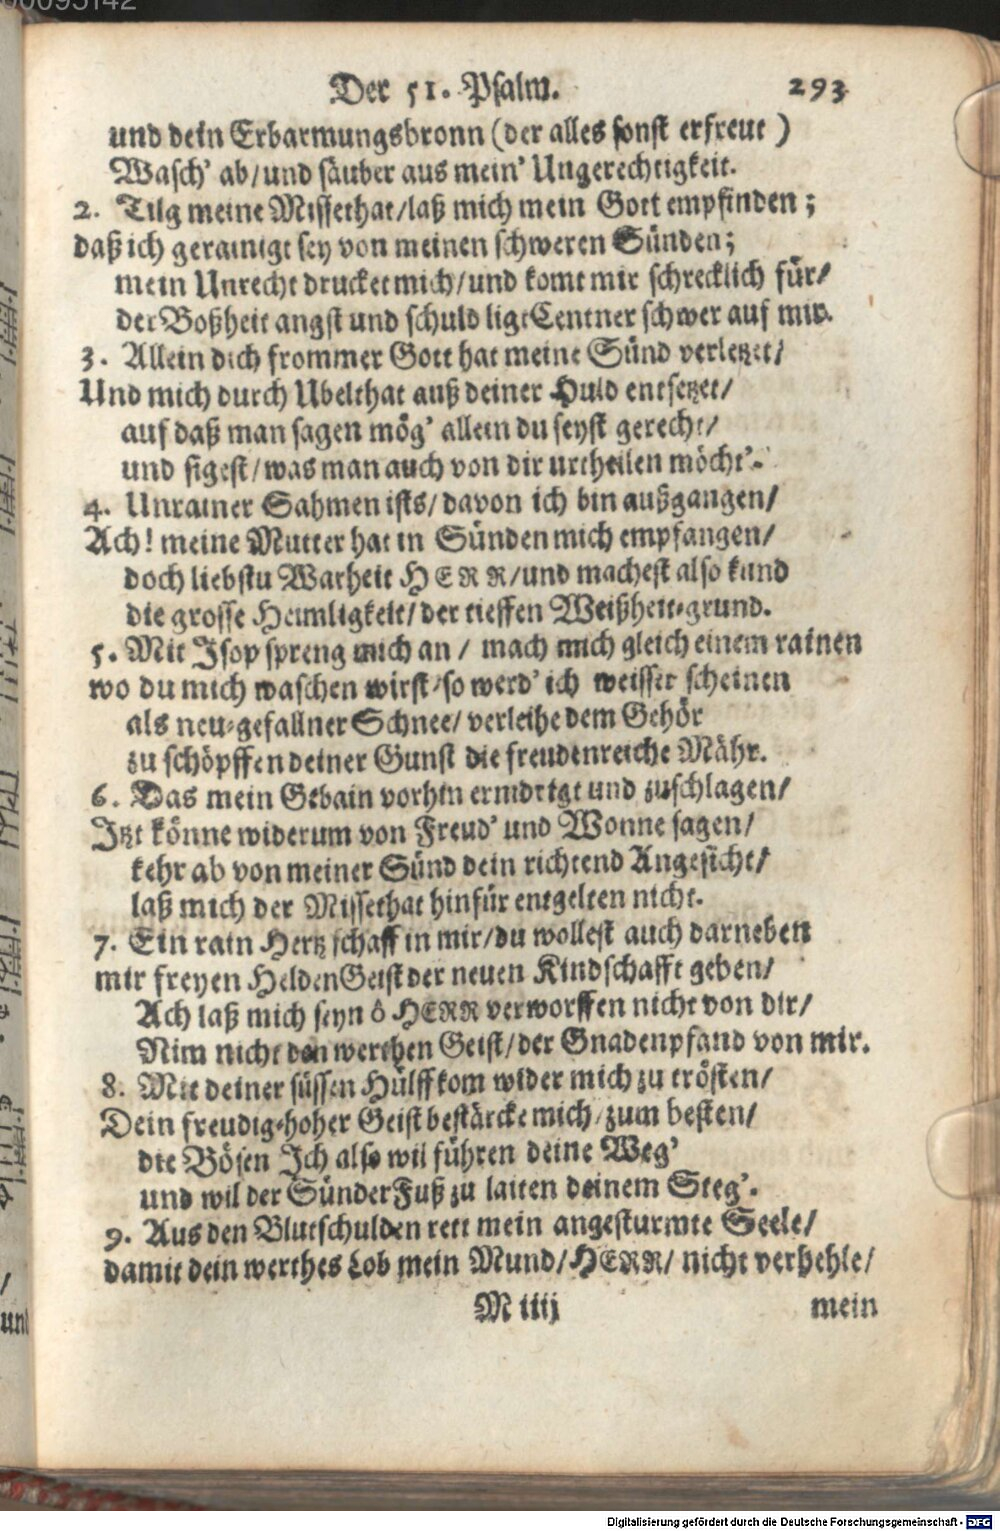 Der 51. Psalm. 293
und dein Erbarmungsbronn (der alles sonst erfreut)
Wasch' ab/und säuber aus mein' Ungerechtigkeit.
2. Tilg meine Missethat/laß mich mein Gott empfinden;
daß ich gerainigt sey von meinen schweren Sünden;
mein Unrecht drucket mich/und komt mir schrecklich für/
der Boßheit angst und schuld ligt Centner schwer auf mir.
3. Allein dich frommer Gott hat meine Sünd verletzet/
Und mich durch Ubelthat auß deiner Huld entsetzet/
auf daß man sagen mög' allein du seyst gerecht/
und sigest/was man auch von dir urtheilen möcht'.
4. Unrainer Sahmen ists/davon ich bin außgangen/
Ach! meine Mutter hat in Sünden mich empfangen/
doch liebstu Warheit HERR/und machest also kund
die grosse Heimligkeit/der tieffen Weißheit-grund.
5. Mit Isop spreng mich an/ mach mich gleich einem rainen
wo du mich waschen wirst/so werd' ich weisser scheinen
als neu-gefallner Schnee/verleihe dem Gehör
zu schöpffen deiner Gunst die freudenreiche Mähr.
6. Das mein Gebain vorhin ernidrigt und zuschlagen/
Itzt könne widerum von Freud' und Wonne sagen/
kehr ab von meiner Sünd dein richtend Angesicht/
laß mich der Missethat hinfür entgelten nicht.
7. Ein rain Hertz schaff in mir/du wollest auch darneben
mir freyen HeldenGeist der neuen Kindschafft geben/
Ach laß mich seyn ô HERR verworffen nicht von dir/
Nim nicht den werthen Geist/der Gnadenpfand von mir.
8. Mit deiner süssen Hülff kom wider mich zu trösten/
Dein freudig-hoher Geist bestärcke mich/zum besten/
die Bösen Ich also wil führen deine Weg'
und wil der Sünder Fuß zu laiten deinem Steg'.
9. Aus den Blutschulden rett mein angesturmte Seele/
damit dein werthes Lob mein Mund/HERR/ nicht verhehle/
M iiij mein
und
Digitalisierung gefördert durch die Deutsche Forschungsgemeinschaft - DFG